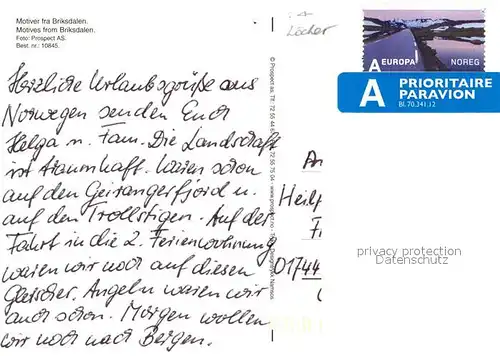 Motiver fra Briksdalen.
Motives from Briksdalen.
Foto: Prospect AS.
Best. nr.: 10845.
Löcher
A EUROPA NOREG
A PRIORITAIRE
PARAVION
Bl. 70.341.12
Herzliche Urlaubsgrüße aus
Norwegen senden Euch
Helga u. Fam. Die Landschaft
ist traumhaft. Waren schon
auf den Geirangerfjord u.
auf den Trollstigen. Auf der
Fahrt in die 2. Ferienwohnung
waren wir noch auf diesen
Gletscher. Angeln waren wir
auch schon. Morgen wollen
wir noch nach Bergen.
© Prospect as. Tlf: 72 55 44 72 55 75 04 www.prospect.no
An
Heilp
01744
privacy protection
Datenschutz